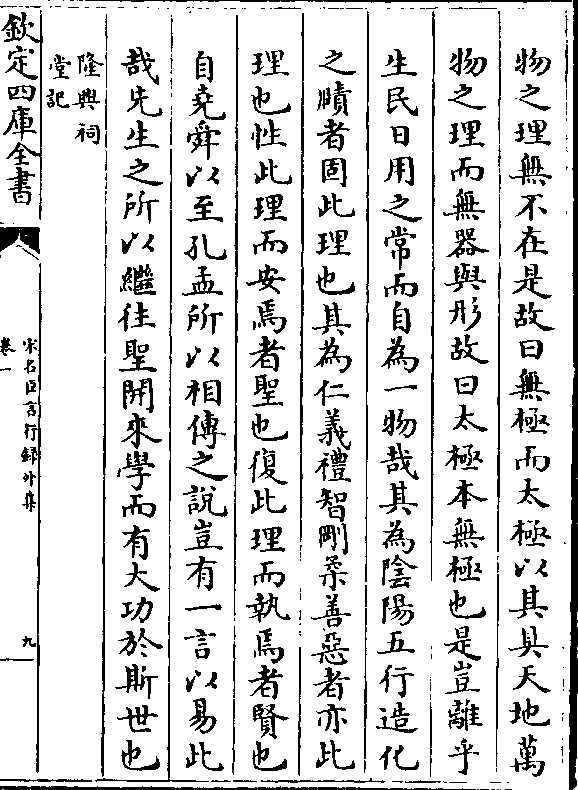 物之理無不在是故曰無極而太極以其具天地萬
物之理而無器與形故曰太極本無極也是豈離乎
生民日用之常而自為一物哉其為陰陽五行造化
之賾者固此理也其為仁義禮智剛柔善惡者亦此
理也性此理而安焉者聖也復此理而執焉者賢也
自堯舜以至孔孟所以相傳之說豈有一言以易此
哉先生之所以繼往聖開來學而有大功於斯世也
隆興祠
堂記
欽定四庫全書
宋名臣言行録外集
卷一
九